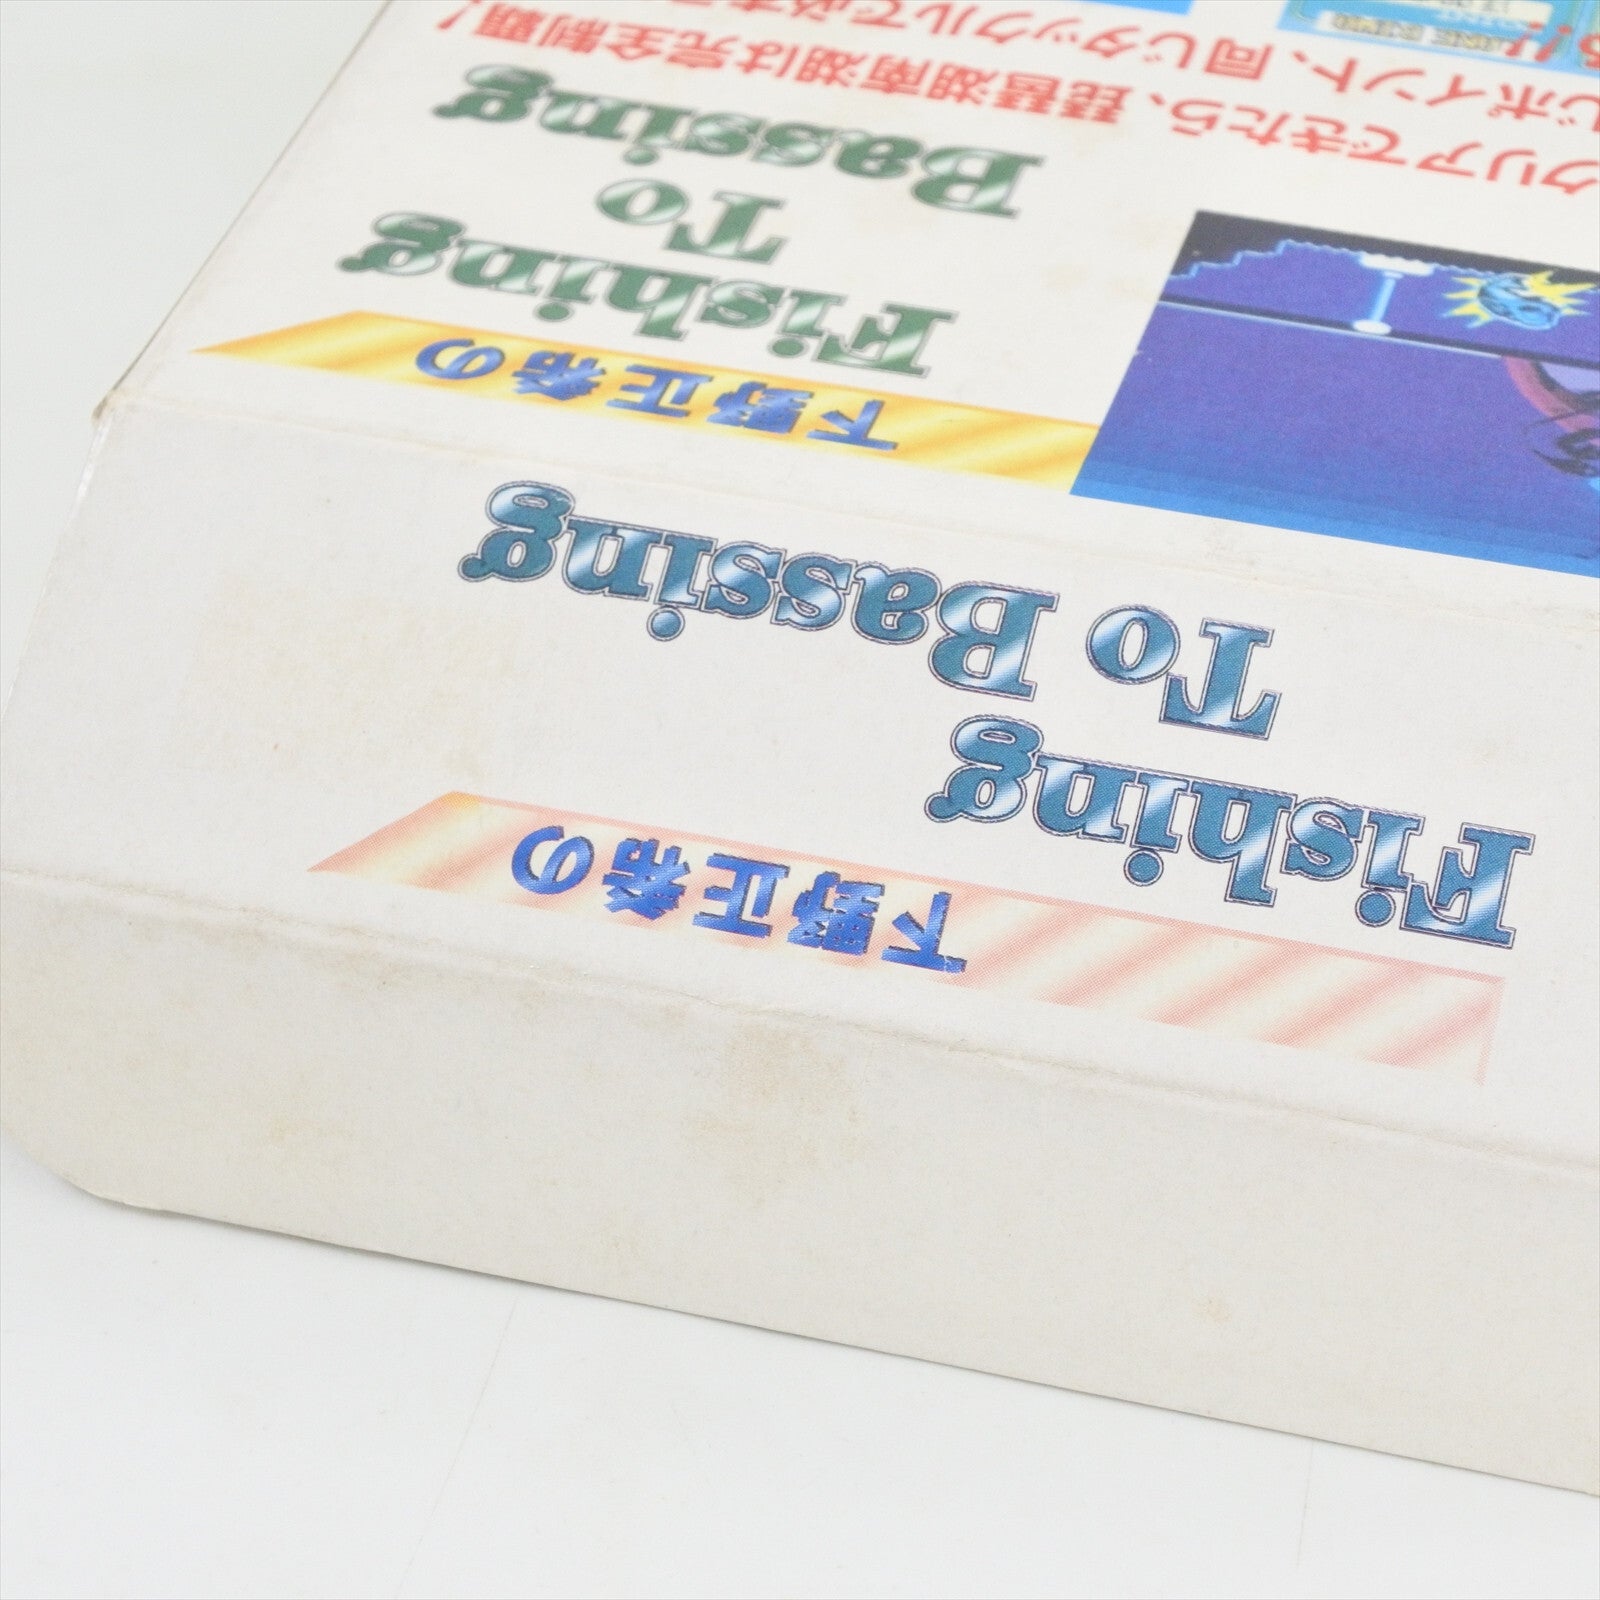 下野正希の
Fishing
To Bassing
下野正希の
Fishing
To
Bassing
クリアできたら、琵琶湖南湖は完全制覇!
じポイント、同じタックルで必ず